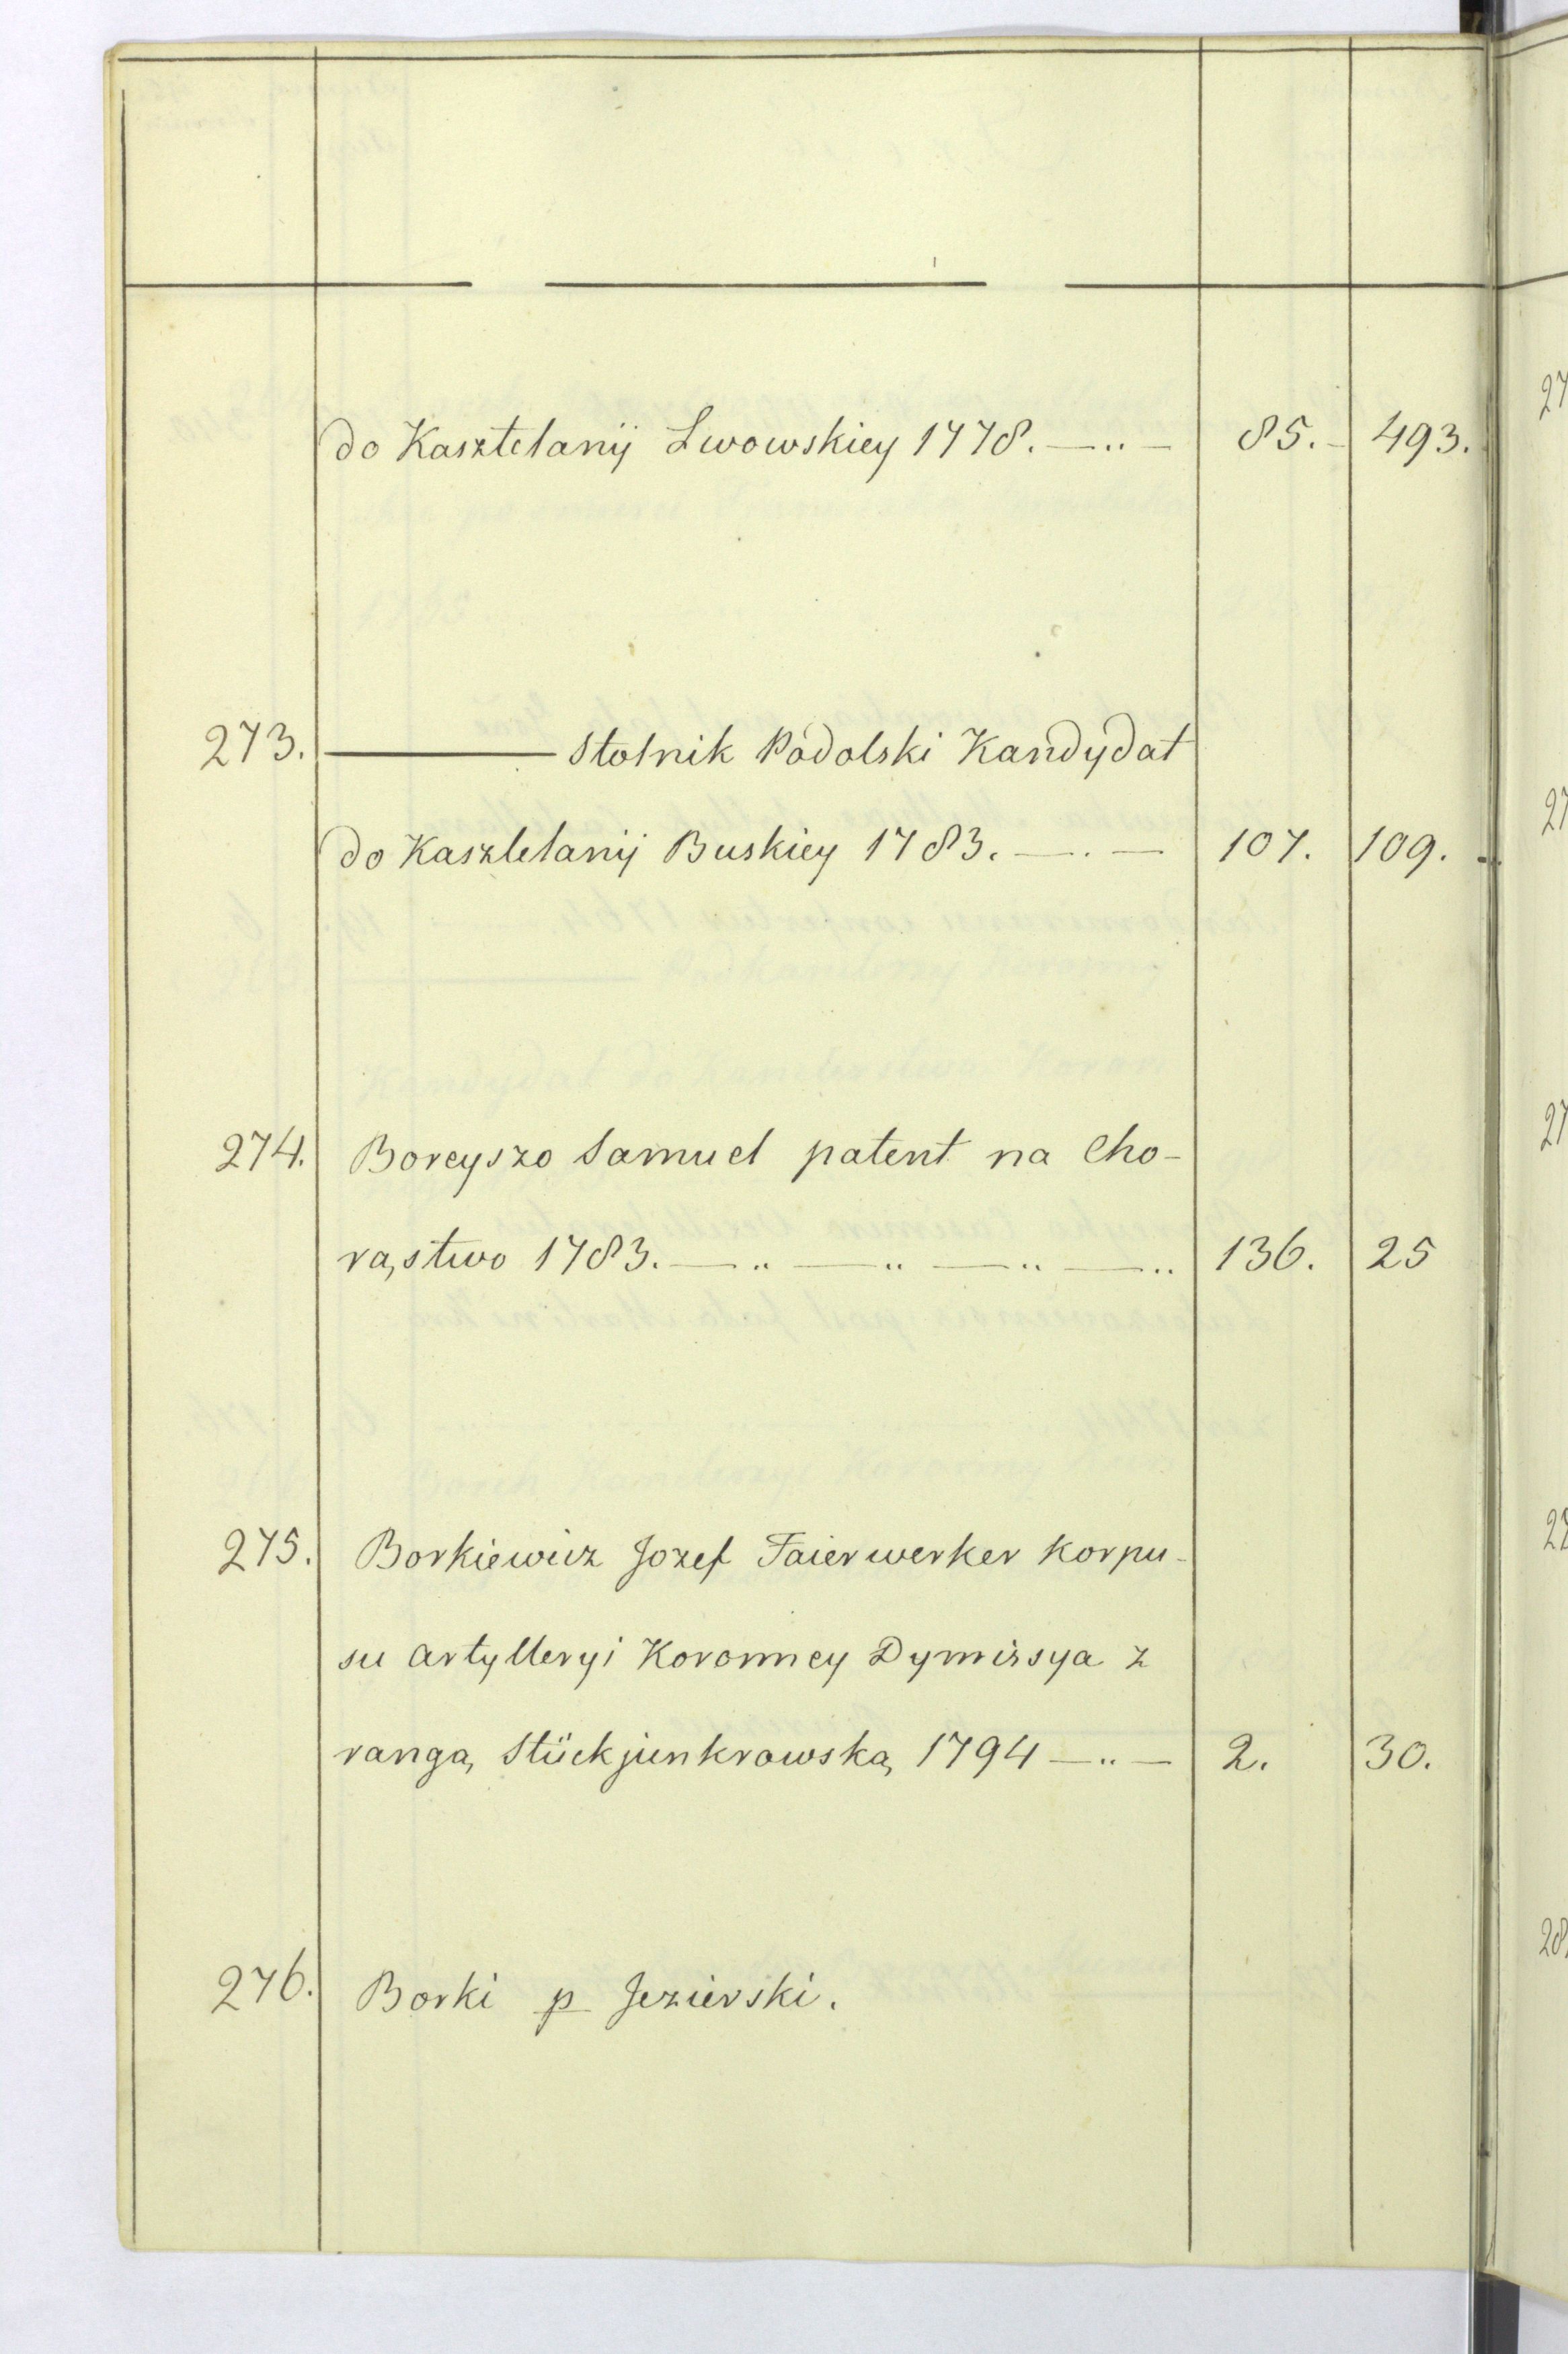 do Kasztelanij Lwowskiey 1778. —..— 85. 493.
273. ——— Stolnik Podolski Kandydat
do Kasztelanij Buskiey 1783. —.— 107. 109.
274. Boreyszo Samuel patent na Cho-
rąstwo 1783. —..—..—..—.. 136. 25
275. Borkiewicz Jozef Faierwerker korpu-
su artylleryi Koronney Dymissya z
rangą Stückjunkrowską 1794 —..— 2. 30.
276. Borki p Jezierski.